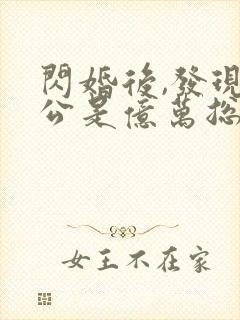 閃婚後,發現
公是億萬
女王不在家